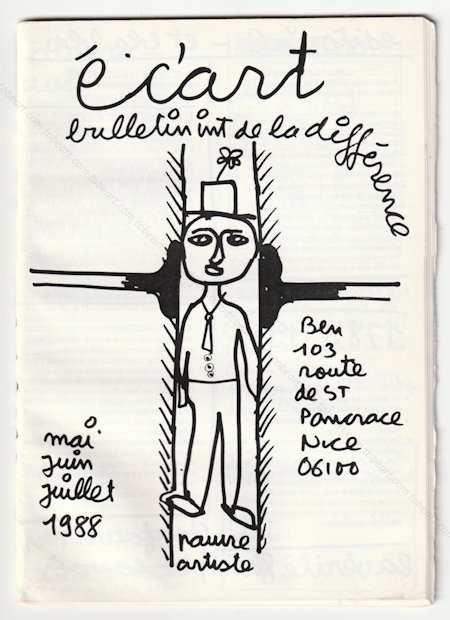 éc'art
bulletin int de la différence
Ben
103
route
de ST
Pancrace
Nice
06100
mai
juin
juillet
1988
pauvre
artiste